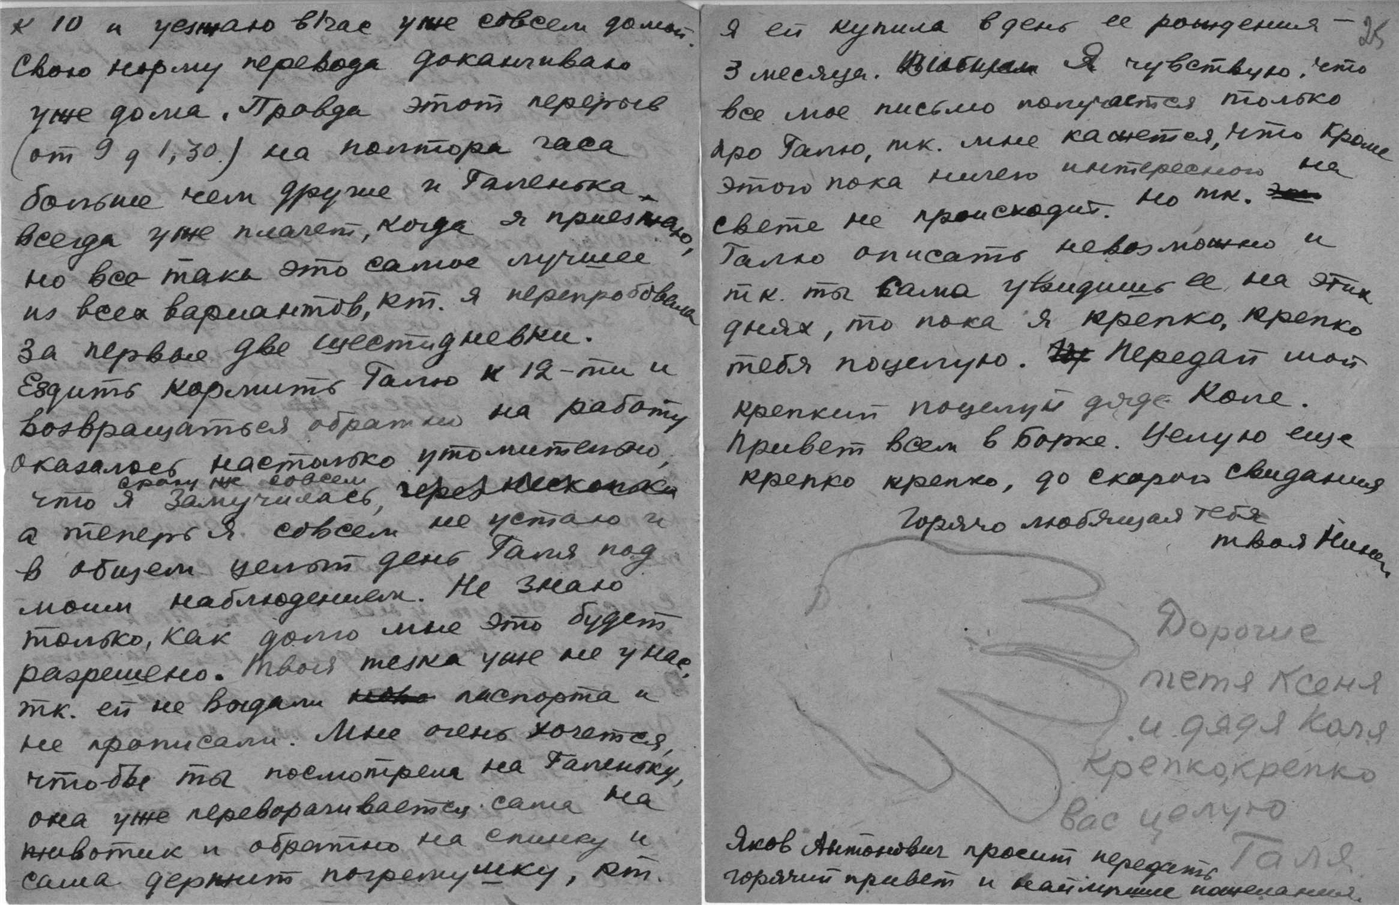 к 10 и уезжаю в 1 час уже совсем домой.
Свою норму перевода доканчиваю
уже дома. Правда этот перерыв
(от 9 д 1,30.) на полтора часа
больше чем другие и Галенька
всегда уже плачет, когда я приезжаю,
но все таки это самое лучшее
из всех вариантов, кт. я перепробовала
за первые две шестидневки.
Ездить кормить Галю к 12-ти и
возвращаться обратно на работу
оказалось настолько утомительно,
что я сразу же совсем замучилась, через несколько
а теперь я совсем не устаю и
в общем целый день Галя под
моим наблюдением. Не знаю
только, как долго мне это будет
разрешено. Твоя тезка уже не у нас,
тк. ей не выдали паспорта и
не прописали. Мне очень хочется,
чтобы ты посмотрела на Галеньку,
она уже переворачивается сама на
животик и обратно на спинку и
сама держит погремушку, кт.
я ей купила в день ее рождения –
3 месяца. Я чувствую, что
все мое письмо получается только
про Галю, тк. мне кажется, что кроме
этого пока ничего интересного на
свете не происходит. Но тк.
Галю описать невозможно и
тк. ты сама увидишь ее на этих
днях, то пока я крепко, крепко
тебя поцелую. Передай мой
крепкий поцелуй дяде Коле.
Привет всем в Борке. Целую еще
крепко крепко, до скорого свидания
Горячо любящая тебя
твоя Нина
25
Дорогие
тетя Ксеня
и дядя Коля
Крепко, крепко
вас целую
Галя
Яков Антонович просит передать
горячий привет и наилучшие пожелания.